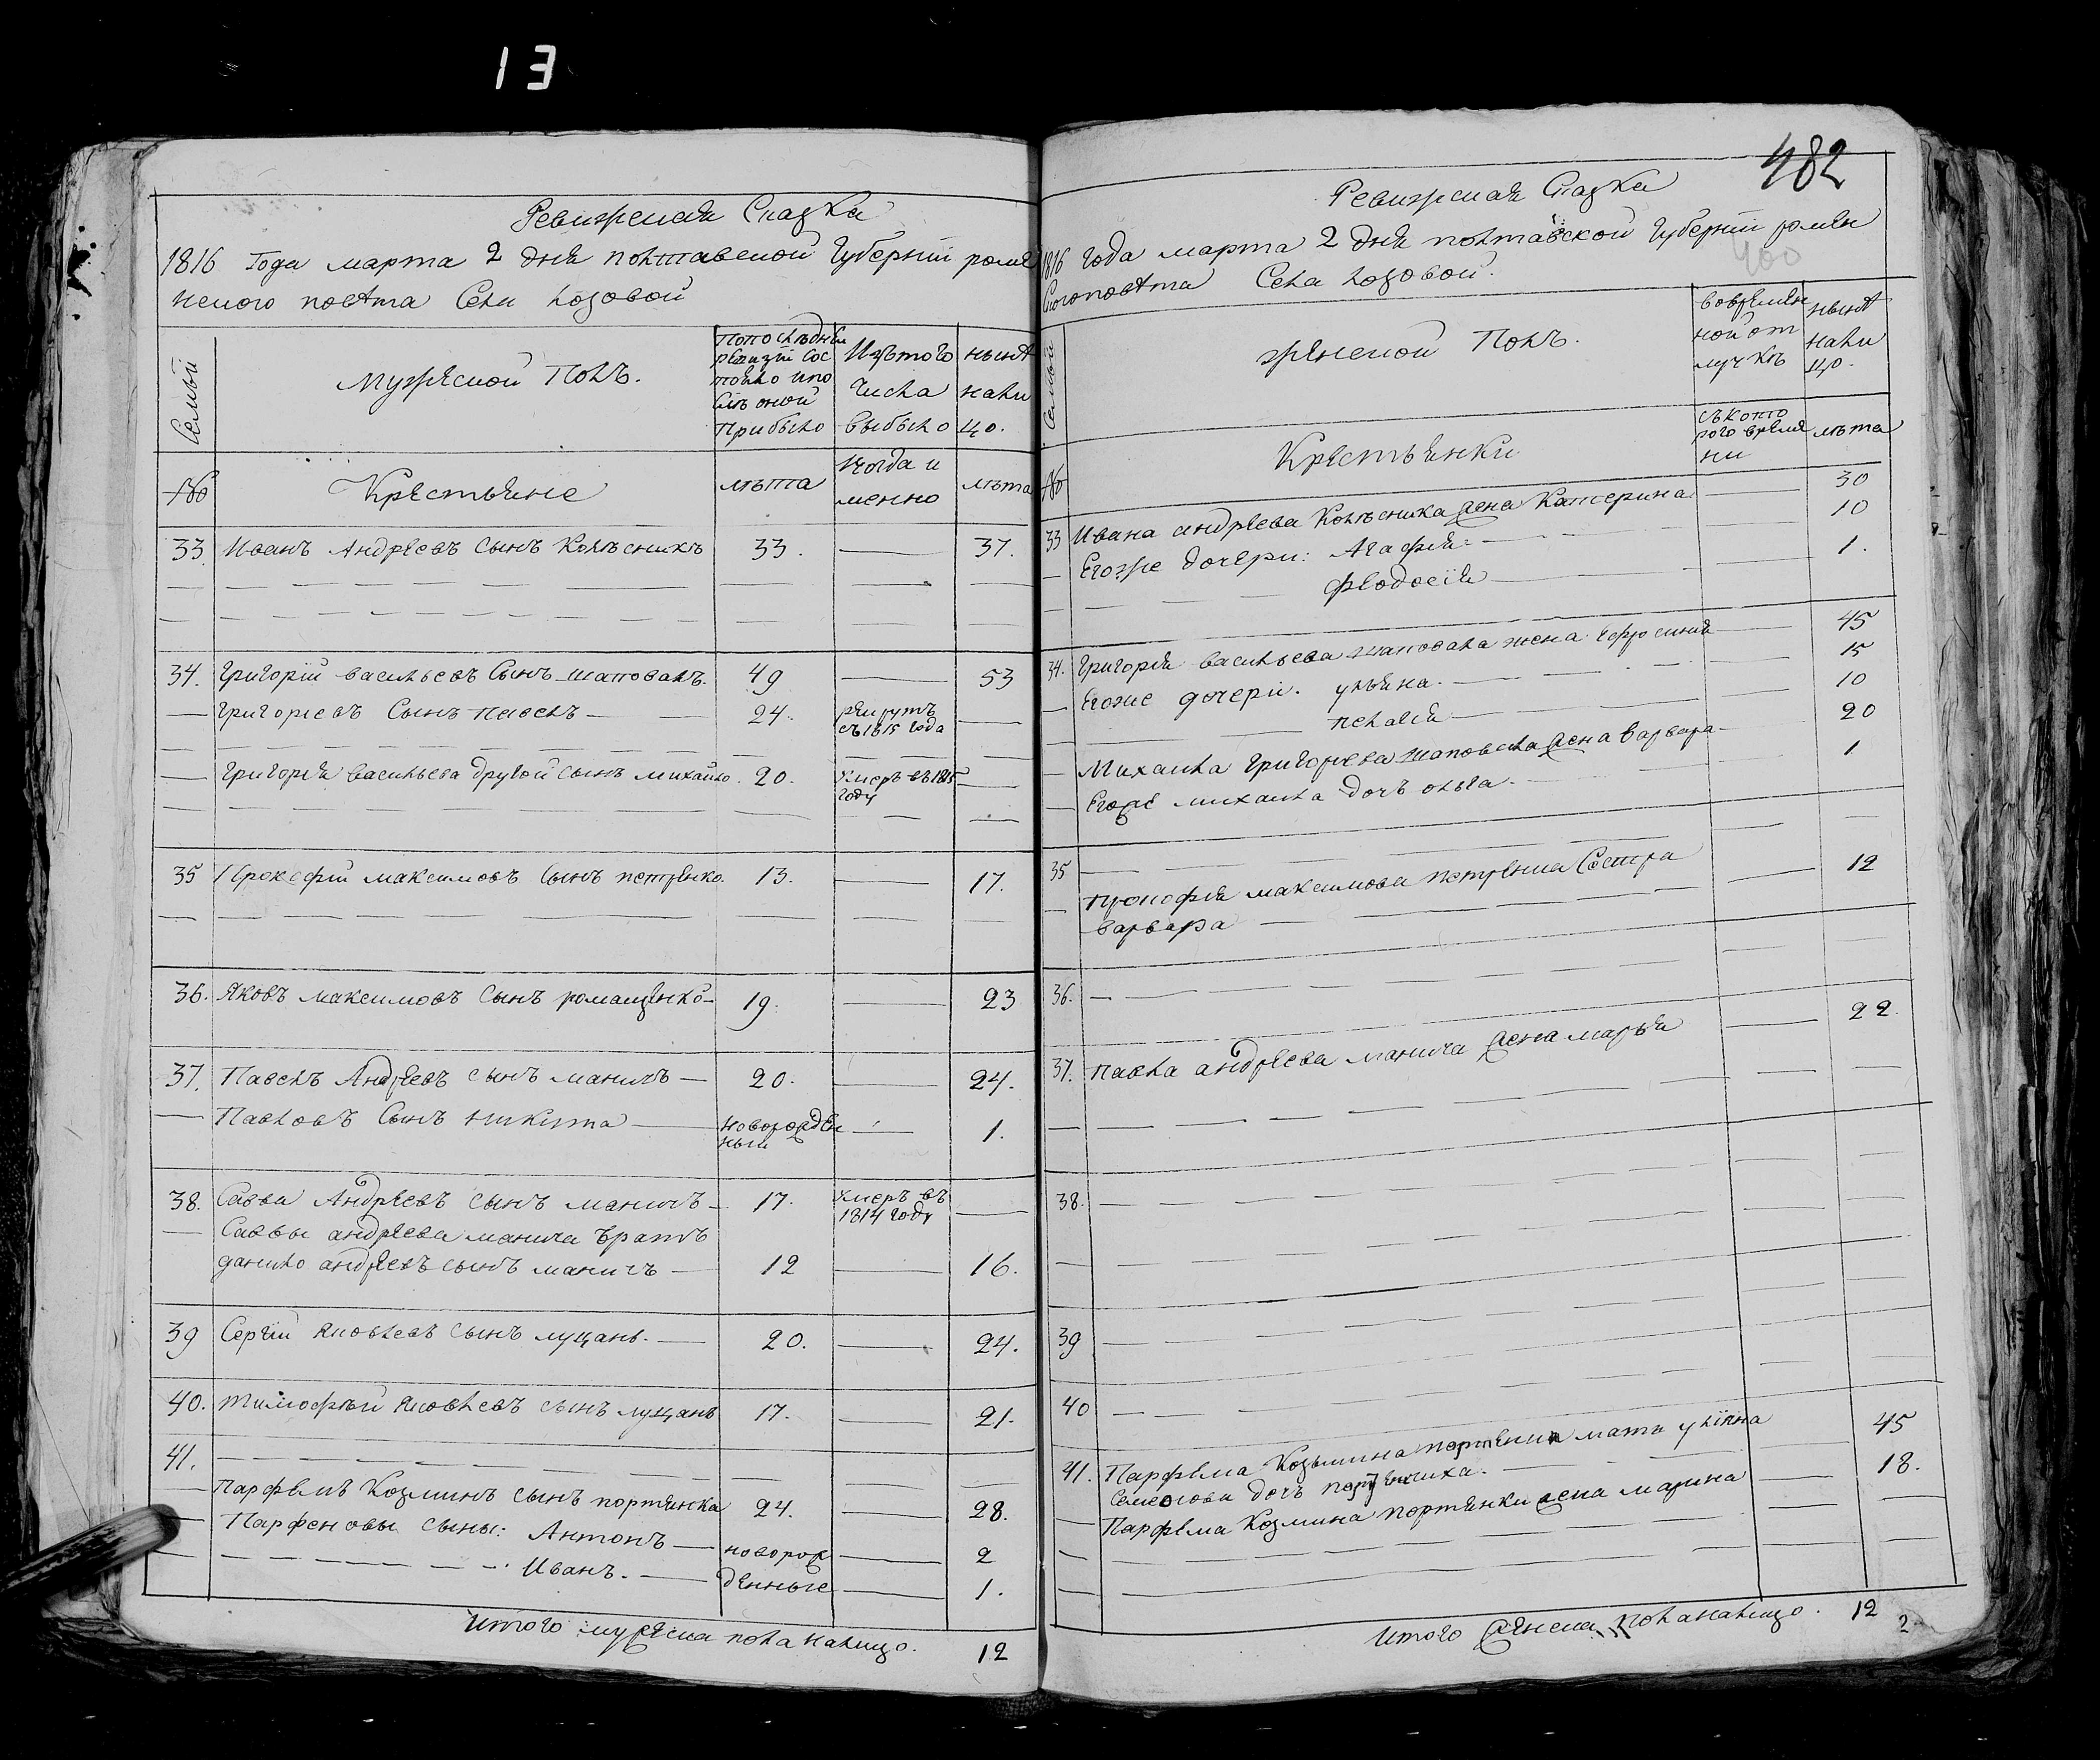 13
Ревизжская Сказка
1816 Года марта 2 дня полтавской Губернии роме
нского повѣта Села лозовой
Семьи
Мужеской Полъ.
По последней
ревизіи сос
тояло и по
слѣ оной
прибыло
Изъ того
числа
выбыло
нынѣ
нали
цо.
№
Крестьяне
лѣта
когда и
менно
лѣта
33. Иванъ Андреевъ сынъ Колѣсникъ 33. 37.
34. Григорій васильевъ Сынъ шаповалъ. 49 53
Григориевъ Сынъ павелъ 24. рекрутъ
съ 1815 года
Григорія васильева другой сынъ михайло. 20. умеръ въ 1815
году
35 Прокофій максимовъ сынъ петренко. 13. 17.
36. Яковъ максимовъ сынъ ромащенко 19. 23
37. Павелъ Андреевъ сынъ маничъ 20. 24.
Павловъ Сынъ никита новорожден
ный 1.
38. Савва Андреевъ сынъ маничъ 17. умеръ въ
1814 году
Саввы андреева манича братъ
данило андреевъ сынъ маничъ 12 16.
39 Сергій Яковлевъ сынъ луцань. 20. 24.
40. Тимофѣй Яковлевъ сынъ луцань 17. 21.
41.
Парфемъ Козминъ сынъ портянка 24. 28.
Парфеновы сыны: Антонъ новорож 2
Иванъ. денные 1.
итого мужеска пола налицо. 12
482
400
Ревизжская Сказка
1816 года марта 2 дня полтавской Губернии ромен
ского повѣта Села лозовой.
Семьи
женской Полъ.
во времян
ной от
лучкѣ
нынѣ
нали
цо.
№
Крестьянки
съ кото
рого време
ни
лѣта
33 Ивана андреева Колѣсника жена Катерина 30
Егоже дочери: Агафія 10
феодосія 1.
34. Григорія васильева шаповала жена Ефросинія 45
Егоже дочери. ульяна. 15
пелагія 10
Михаила григорьева шаповала жена варвара 20
Егоже михаила дочь ольга. 1
35
прокофія максимова петренка Сестра
варвара 12
36.
37. павла андреева манича жена марья 22.
38.
39
40
41. Парфема Козьмина портянки мать уліяна 45
Парфема Козмина портянки жена марина 18.
итого женска пола налицо. 12
2